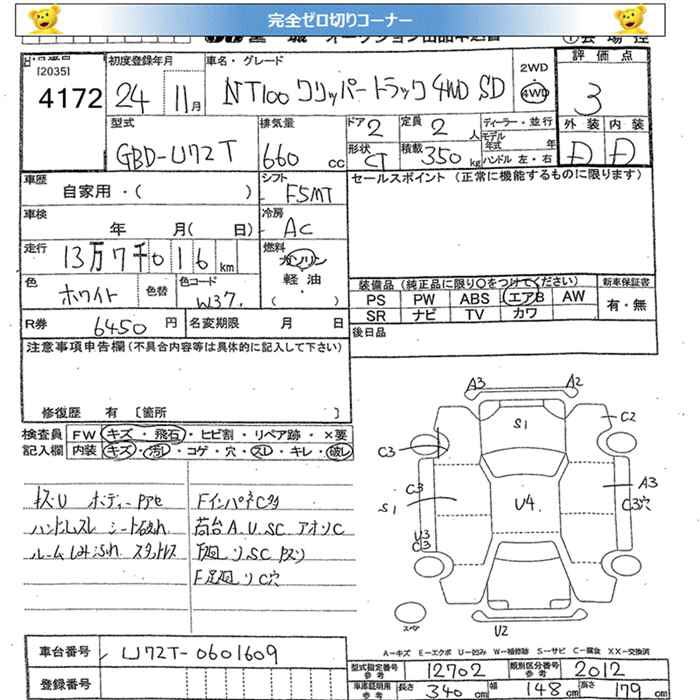 完全ゼロ切りコーナー
[2035]
4172
初度登録年月
24 11月
車名・グレード
NT100 クリッパートラック 4WD SD
2WD
4WD
評価点
3
外装 内装
D D
型式
GBD-U72T
排気量
660 cc
ドア 2
定員 2人
形状 CT
積載 350 kg
ディーラー・並行
モデル年式 年
ハンドル 左・右
車歴
自家用・( )
シフト
F5MT
セールスポイント (正常に機能するものに限ります)
車検
年 月( 日)
冷房
AC
走行
13万7千016km
燃料
ガソリン
軽油
( )
色
ホワイト
色替
色コード
W37
装備品 (純正品に限り○をつけてください)
PS PW ABS エアB AW
SR ナビ TV カワ
新車保証書
有・無
R券 6450円
名変期限 月 日
後日品
注意事項申告欄(不具合内容等は具体的に記入して下さい)
修復歴 有 [箇所 ]
検査員記入欄
FW キズ・飛石・ヒビ割・リペア跡・×要
内装 キズ・汚レ・コゲ・穴・スレ・キレ・破レ
キズ・U ボディーPアセ
ハンドルスレ シート破れ
Fインパネ
荷台A.U.SC
A3 A2
S1
C2
C3
C3
S1
U4
A3
C3穴
U3
C3
スペア
U2
A-キズ E-エクボ U-凹み W-補修跡 S-サビ C-腐食 XX-交換済
車台番号 U72T-0601609
登録番号
型式指定番号 参考 12702
類別区分番号 参考 2012
車庫証明用 参考 長さ 340cm 幅 148cm 高さ 179cm